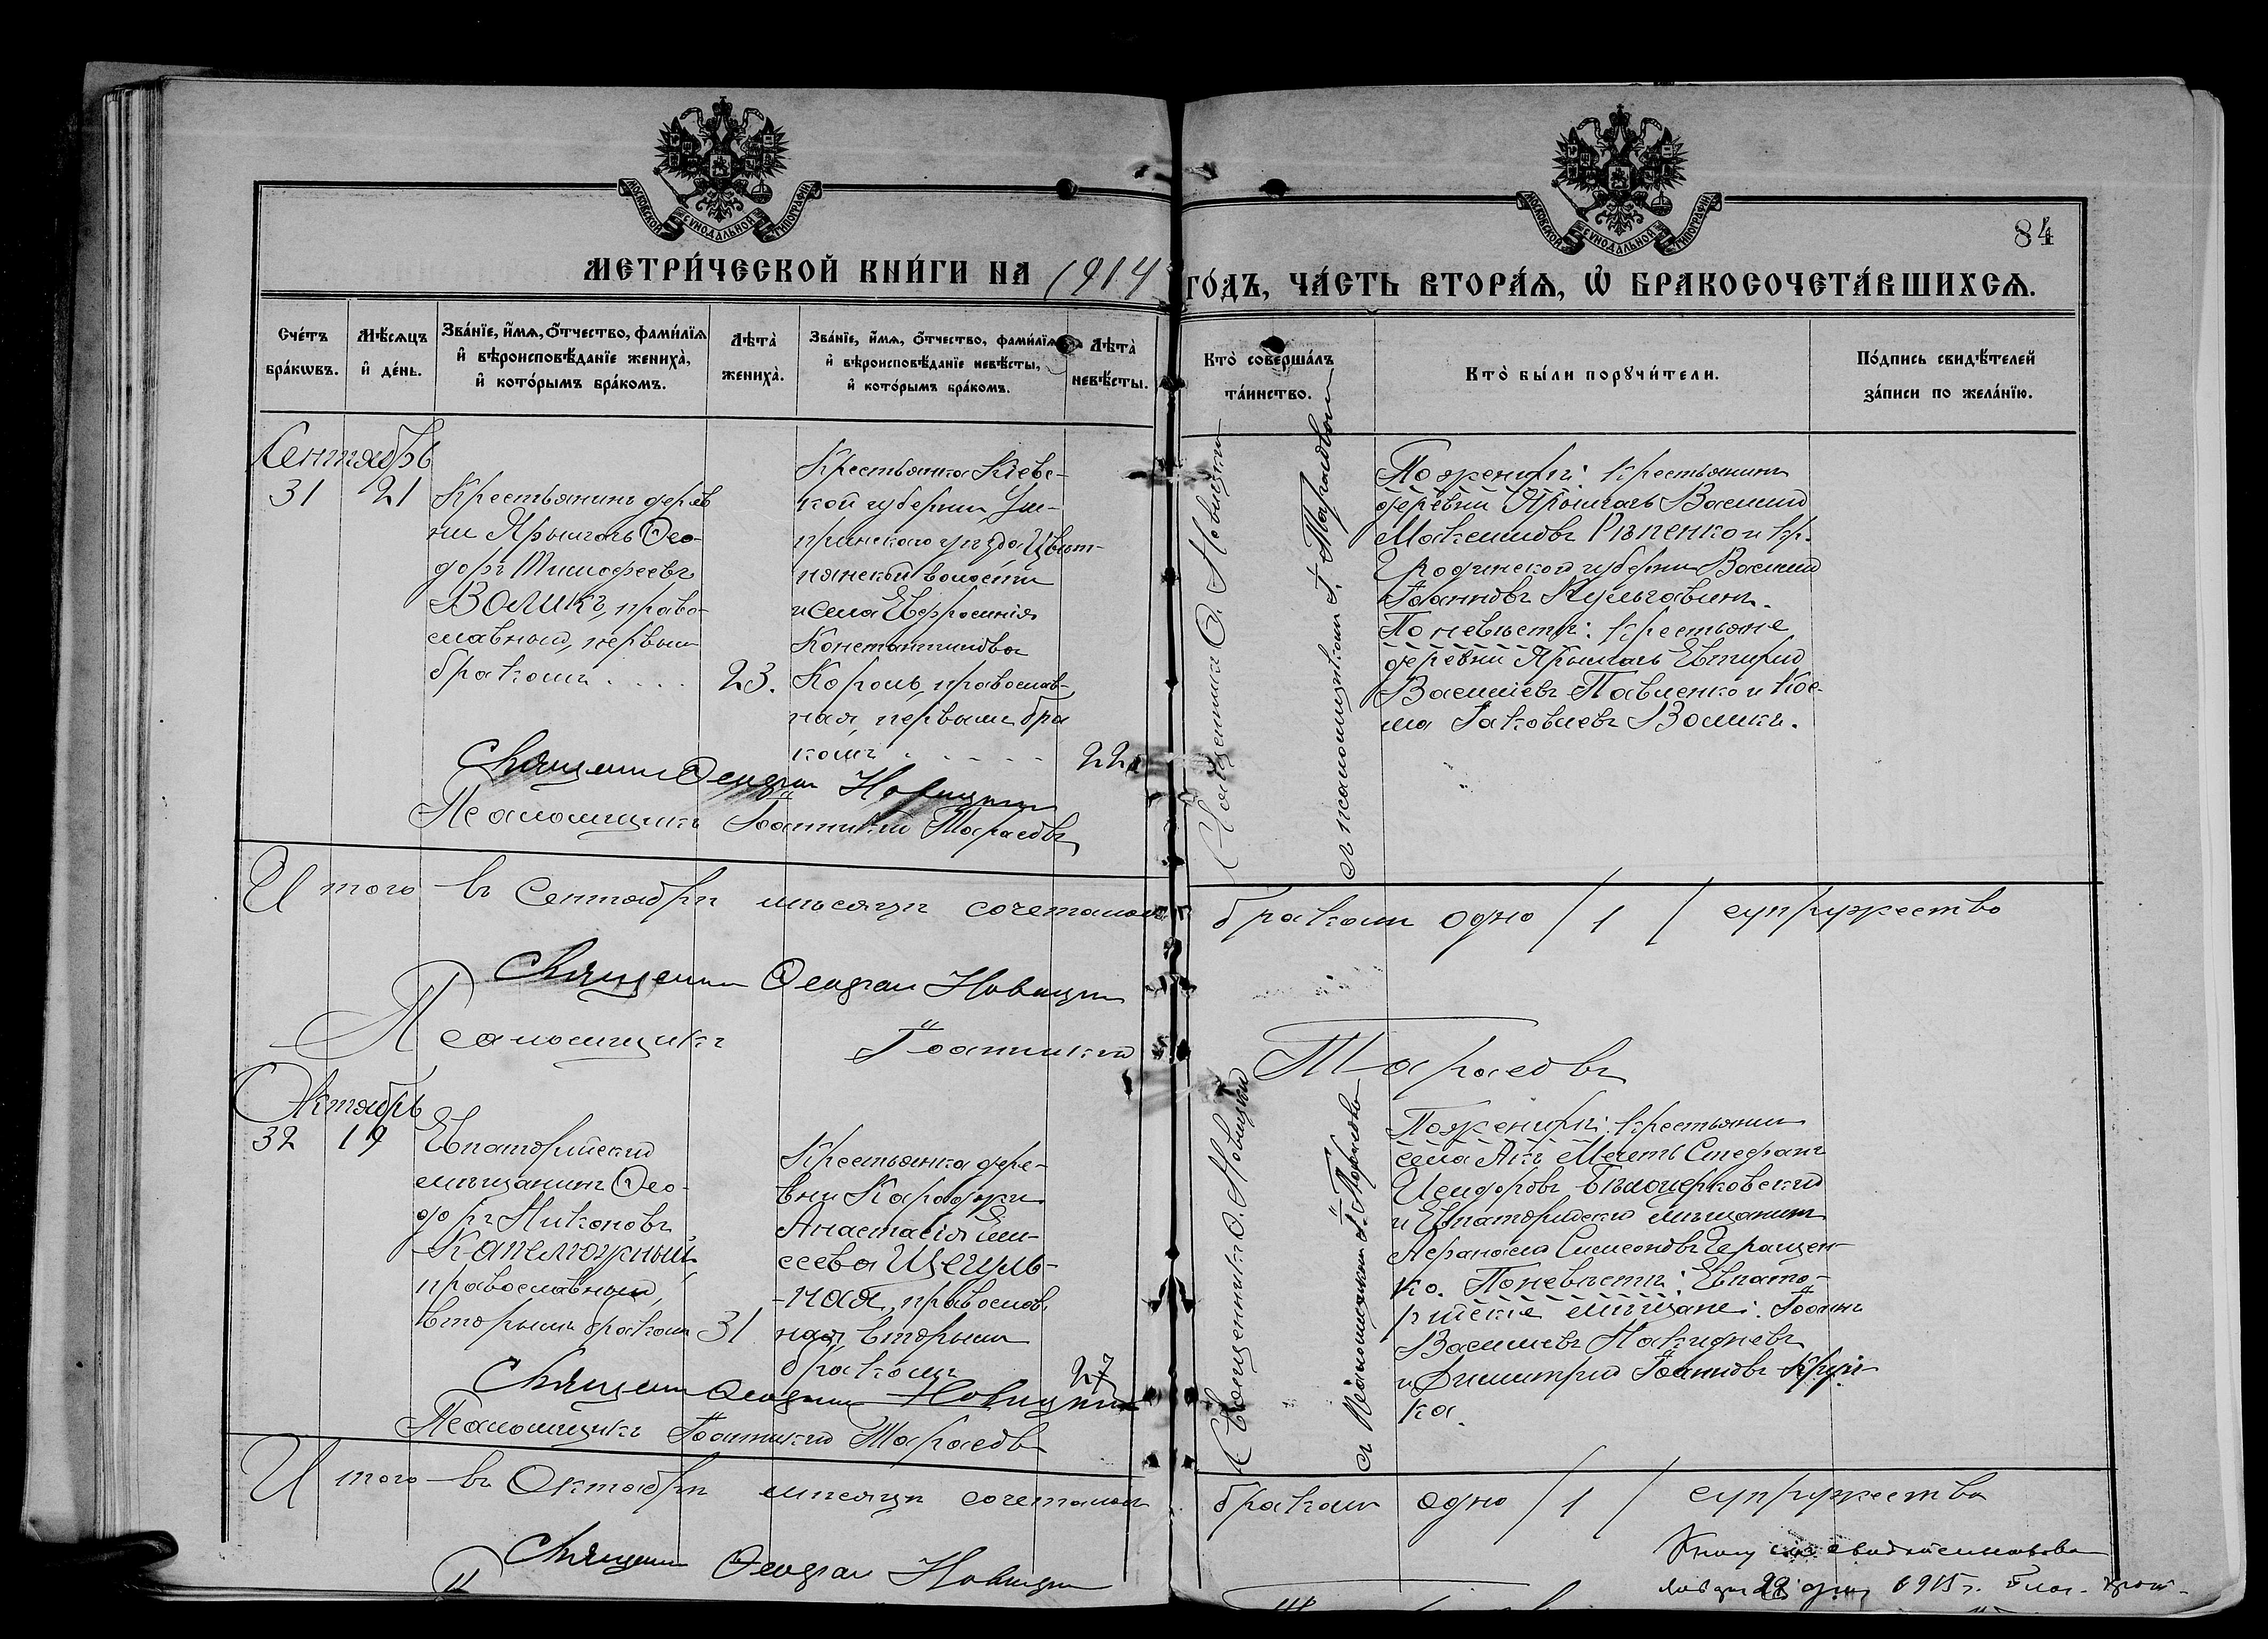 МОСКОВСКОЙ СѴНОДАЛЬНОЙ ТИПОГРАФІИ
МОСКОВСКОЙ СѴНОДАЛЬНОЙ ТИПОГРАФІИ
84
МЕТРИ́ЧЕСКОЙ КНИ́ГИ НА 1914 ГО́ДЪ, ЧА́СТЬ ВТОРА́Ѧ, Ѡ҆ БРАКОСОЧЕТА́ВШИХСѦ.
Сче́тъ бра́кѡвъ.
Мѣ́сѧцъ и҆ де́нь.
Зва́нїе, и҆́мѧ, ѻ҆́тчество, фами́лїѧ
и҆ вѣроисповѣ́данїе жениха̀,
и҆ кото́рымъ бра́комъ.
Лѣта̀ жениха̀.
Зва́нїе, и҆́мѧ, ѻ҆́тчество, фами́лїѧ
и҆ вѣроисповѣ́данїе невѣ́сты,
и҆ кото́рымъ бра́комъ.
Лѣта̀ невѣ́сты.
Кто̀ соверша́лъ
та́инство.
Кто̀ бы́ли порꙋчи́тели.
По́дпись свидѣ́телей
за́писи по жела́нїю.
Сентябрь
31 21
Крестьянинъ дерев
ни Ярылгачъ Ѳео-
доръ Тимофеевъ
Воликъ, право-
славный, первым
бракомъ . . . .
23.
Крестьянка Кіевс-
кой губерніи, Ум-
Цвѣт-
нянской волости
и села Евфросинія
Константинова
Король, православ-
ная, первымъ бра
комъ . . . . .
22
Священникъ Ѳ. Новицкій
съ псаломщикомъ І. Тарасовымъ
По женихѣ: крестьянинъ
деревни Ярылгачъ Василій
Максимовъ Рѣпенко и кр.
Гродненской губерніи Василій
Іоанновъ
По невѣстѣ: крестьяне
деревни Ярылгачъ Евтирій
Васильевъ Павленко и Кос-
ма Іаковлевъ Воликъ.
Священникъ Ѳеодоръ Новицкій
Псаломщикъ Іоанникій Тарасовъ
Итого въ Сентябрѣ мѣсяцѣ сочеталось бракомъ одно / 1 / супружество
Священникъ Ѳеодоръ Новицкій
Псаломщикъ Іоанникій Тарасовъ
Октябрь
32 19
Евпаторійскій
мѣщанинъ Ѳео-
доръ Никоновъ
Капелюжный
православный,
вторымъ бракомъ
31
Крестьянка дере-
вни Караджи
Анастасія Ели-
сеева Щегуль-
ная, православ
ная вторымъ
бракомъ
27
Священникъ Ѳ. Новицкій
съ Псаломщикомъ І. Тарасовымъ
По женихѣ: крестьянин
села Акъ Мечеть Стефанъ
Исидоровъ Бѣлоцерковскій
и Евпаторійскій мѣщанинъ
Афанасій Симеоновъ Геращен-
ко. По невѣстѣ: Евпато-
рійскіе мѣщане: Іоаннъ
Васильевъ
и Димитрій Іоанновъ
ка.
Священникъ Ѳеодоръ Новицкій
Псаломщикъ Іоанникій Тарасовъ
Итого въ Октябрѣ мѣсяцѣ сочеталось бракомъ одно / 1 / супружество
Священникъ Ѳеодоръ Новицкій
Книгу сію
1915 г.